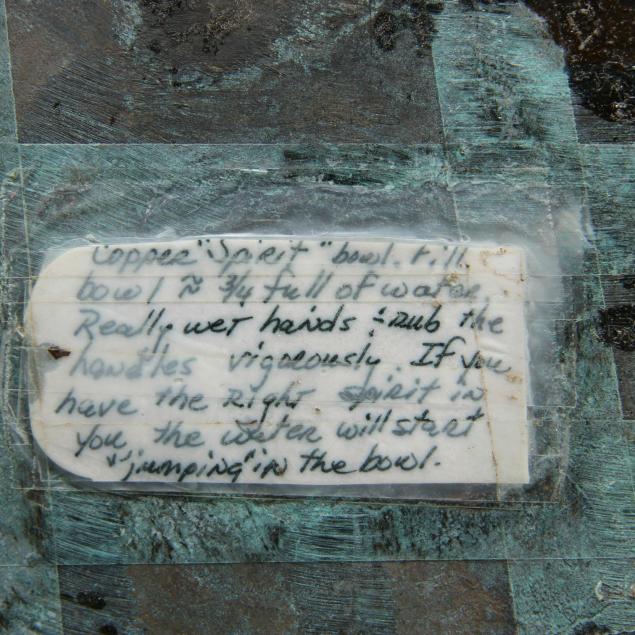 Copper "Spirit" bowl. Fill
bowl ≈ 3/4 full of water.
Really wet hands & rub the
handles vigorously. If you
have the right spirit in
you the water will start
"jumping" in the bowl.